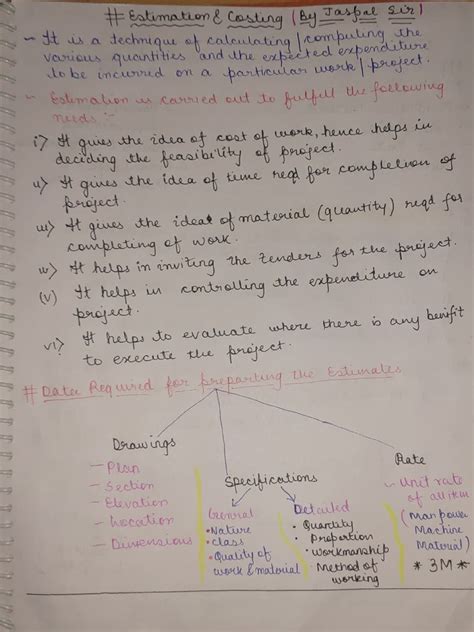 # Estimation & Costing (By Jaspal Sir)
- It is a technique of calculating/computing the
various quantities and the expected expenditure
to be incurred on a particular work/project.
- Estimation is carried out to fulfill the following
needs :-
i) It gives the idea of cost of work, hence helps in
deciding the feasibility of project.
ii) It gives the idea of time reqd for completion of
project.
iii) It gives the idea of material (quantity) reqd for
completing of work.
iv) It helps in inviting the tenders for the project.
(v) It helps in controlling the expenditure on
project.
vi) It helps to evaluate where there is any benifit
to execute the project.
# Data Required for preparting the Estimates
Drawings
- Plan
- Section
- Elevation
- Location
- Dimensions
Specifications
General
• Nature
• class
• Quality of
work & material
Detailed
• Quantity
• Proportion
• workmanship
• Method of
working
Rate
- Unit rate
of all item
(Man power
Machine
Material)
* 3M *